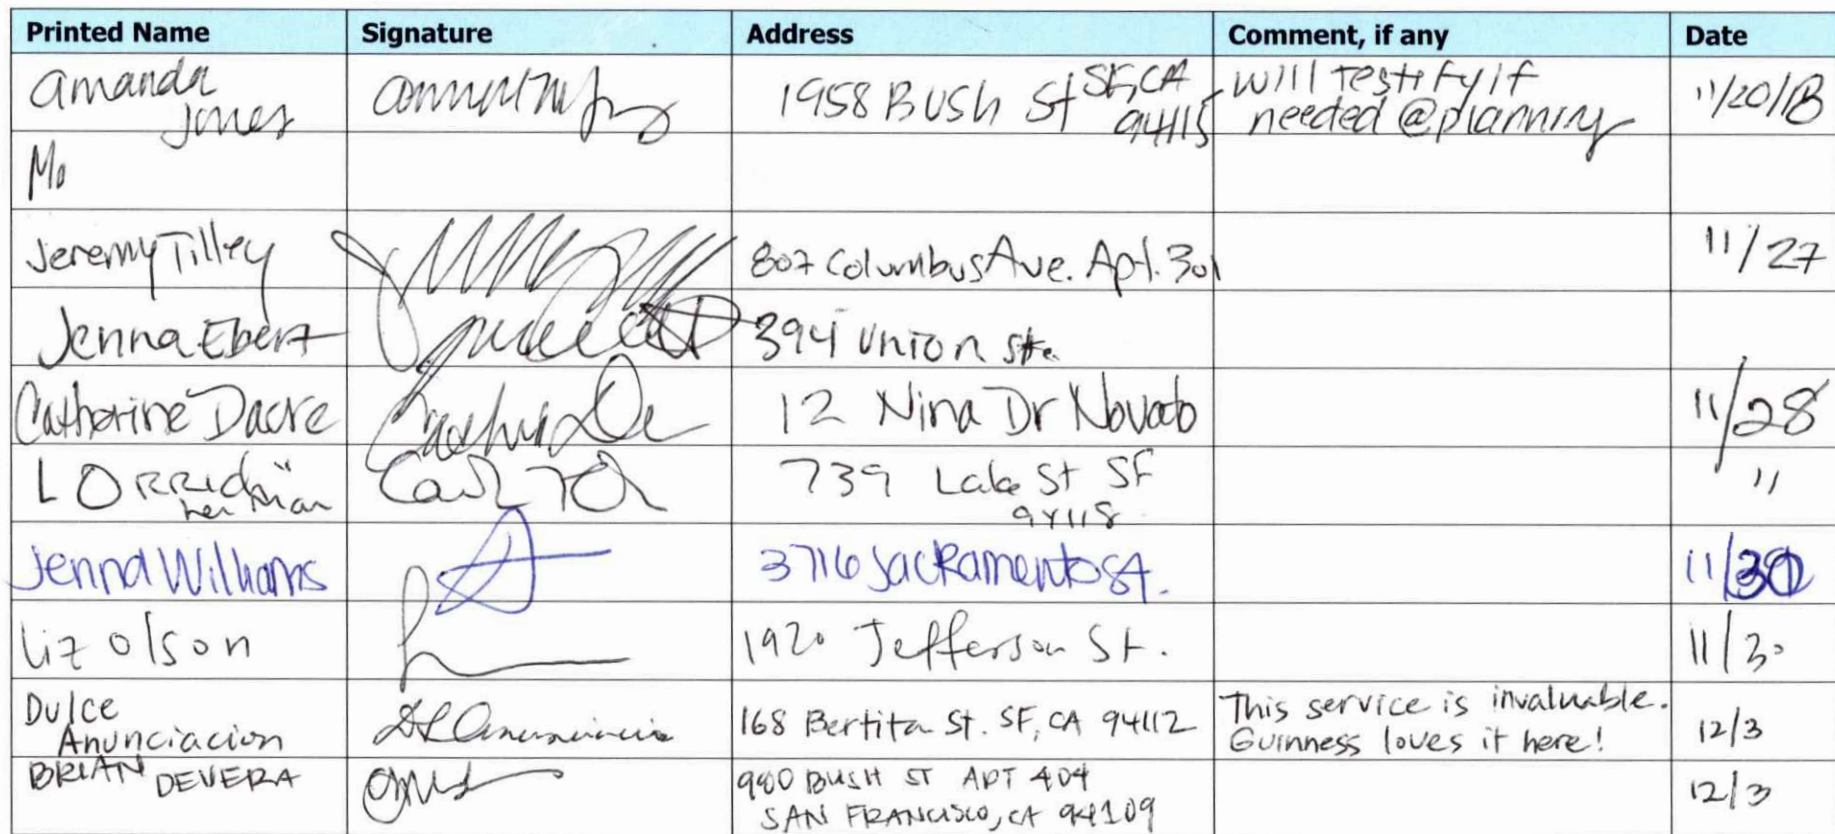 Printed Name Signature Address Comment, if any Date
Amanda Jones 1958 Bush St SF, CA 94115 will testify if needed @planning 11/20/18
Mo
Jeremy Tilley 807 Columbus Ave. Apt. 301 11/27
Jenna Ebert 394 Union
Catherine Dacre 12 Nina Dr Novato 11/28
739 Lake St SF 94118 "
Jenna Williams 3716 Sacramento St. 11/30
Liz Olson 1920 Jefferson St. 11/30
Dulce Anunciacion 168 Bertita St. SF, CA 94112 This service is invaluable. Guinness loves it here! 12/3
BRIAN DEVERA 980 BUSH ST APT 404 SAN FRANCISCO, CA 94109 12/3